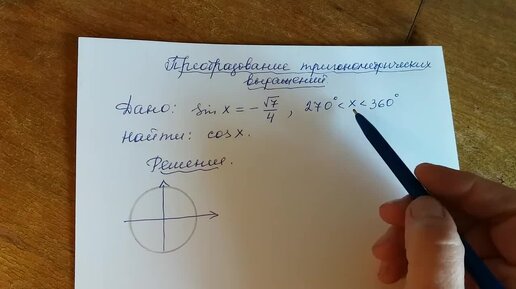 Преобразование тригонометрических
выражений
Дано: sin x = -√7/4, 270° < x < 360°
Найти: cos x.
Решение.